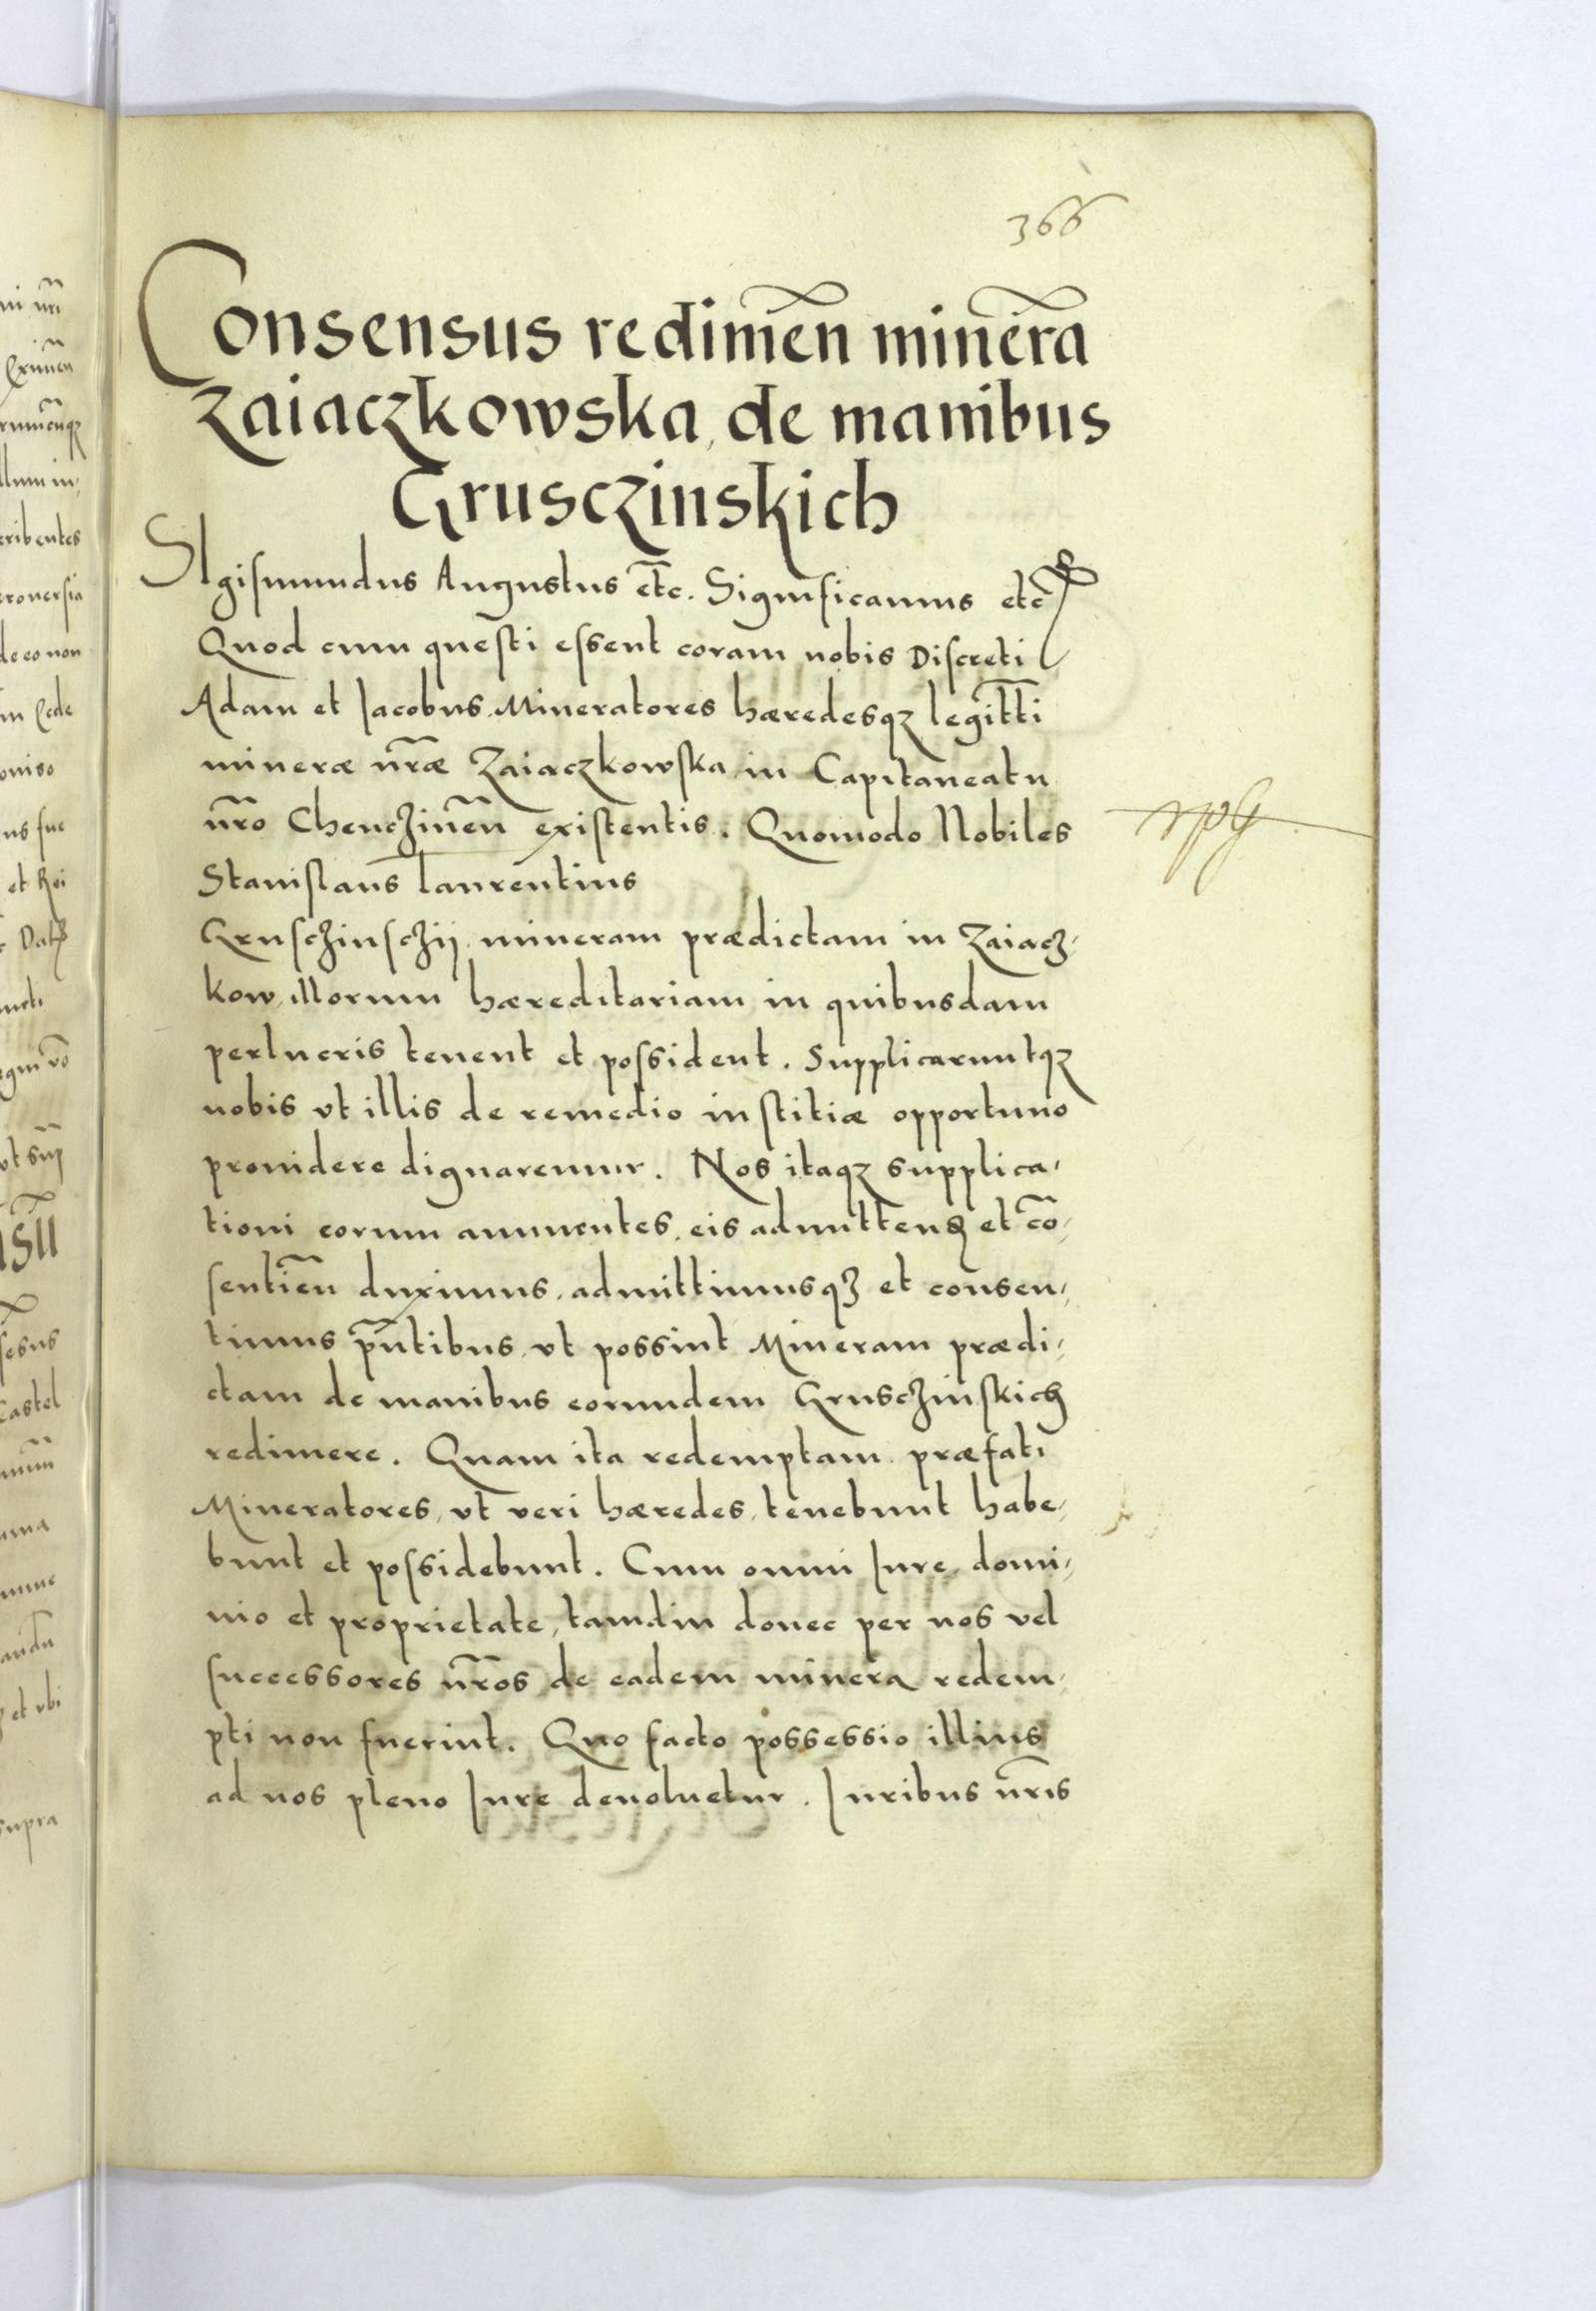 366
Consensus redimen̄ minera̅
Zaiaczkowska, de manibus
Grusczinskich
SIgismundus Augustus et̄c. Significamus etc̄
Quod cum questi essent coram nobis Discreti
Adam et Jacobus Mineratores hæredesqz legitt̄i
mineræ nr̄æ Zaiaczkowska in Capitaneatu
nr̄o Chenczinen̄ existentis. Quomodo Nobiles
Stanislaus Laurentius
Grusczinsczij mineram prædictam in Zaiacz,
kow illorum hæreditariam in quibusdam
perlucris tenent et possident. Supplicaruntqz
nobis vt illis de remedio iustitiæ opportuno
prouidere dignaremur. Nos itaqz supplica,
tioni eorum annuentes, eis admitten̄ et cō,
sentien̄ duximus, admittimusqz et consen,
timus pn̄tibus, vt possint Mineram prædi,
ctam de manibus eorundem Grusczinskich
redimere. Quam ita redemptam præfati
Mineratores, vt veri hæredes, tenebunt habe,
bunt et possidebunt. Cum omni Jure, domi,
nio et proprietate, tamdiu donec per nos vel
successores nr̄os de eadem minera redem,
pti non fuerint. Quo facto possessio illius
ad nos pleno Jure deuoluetur. Juribus nr̄is